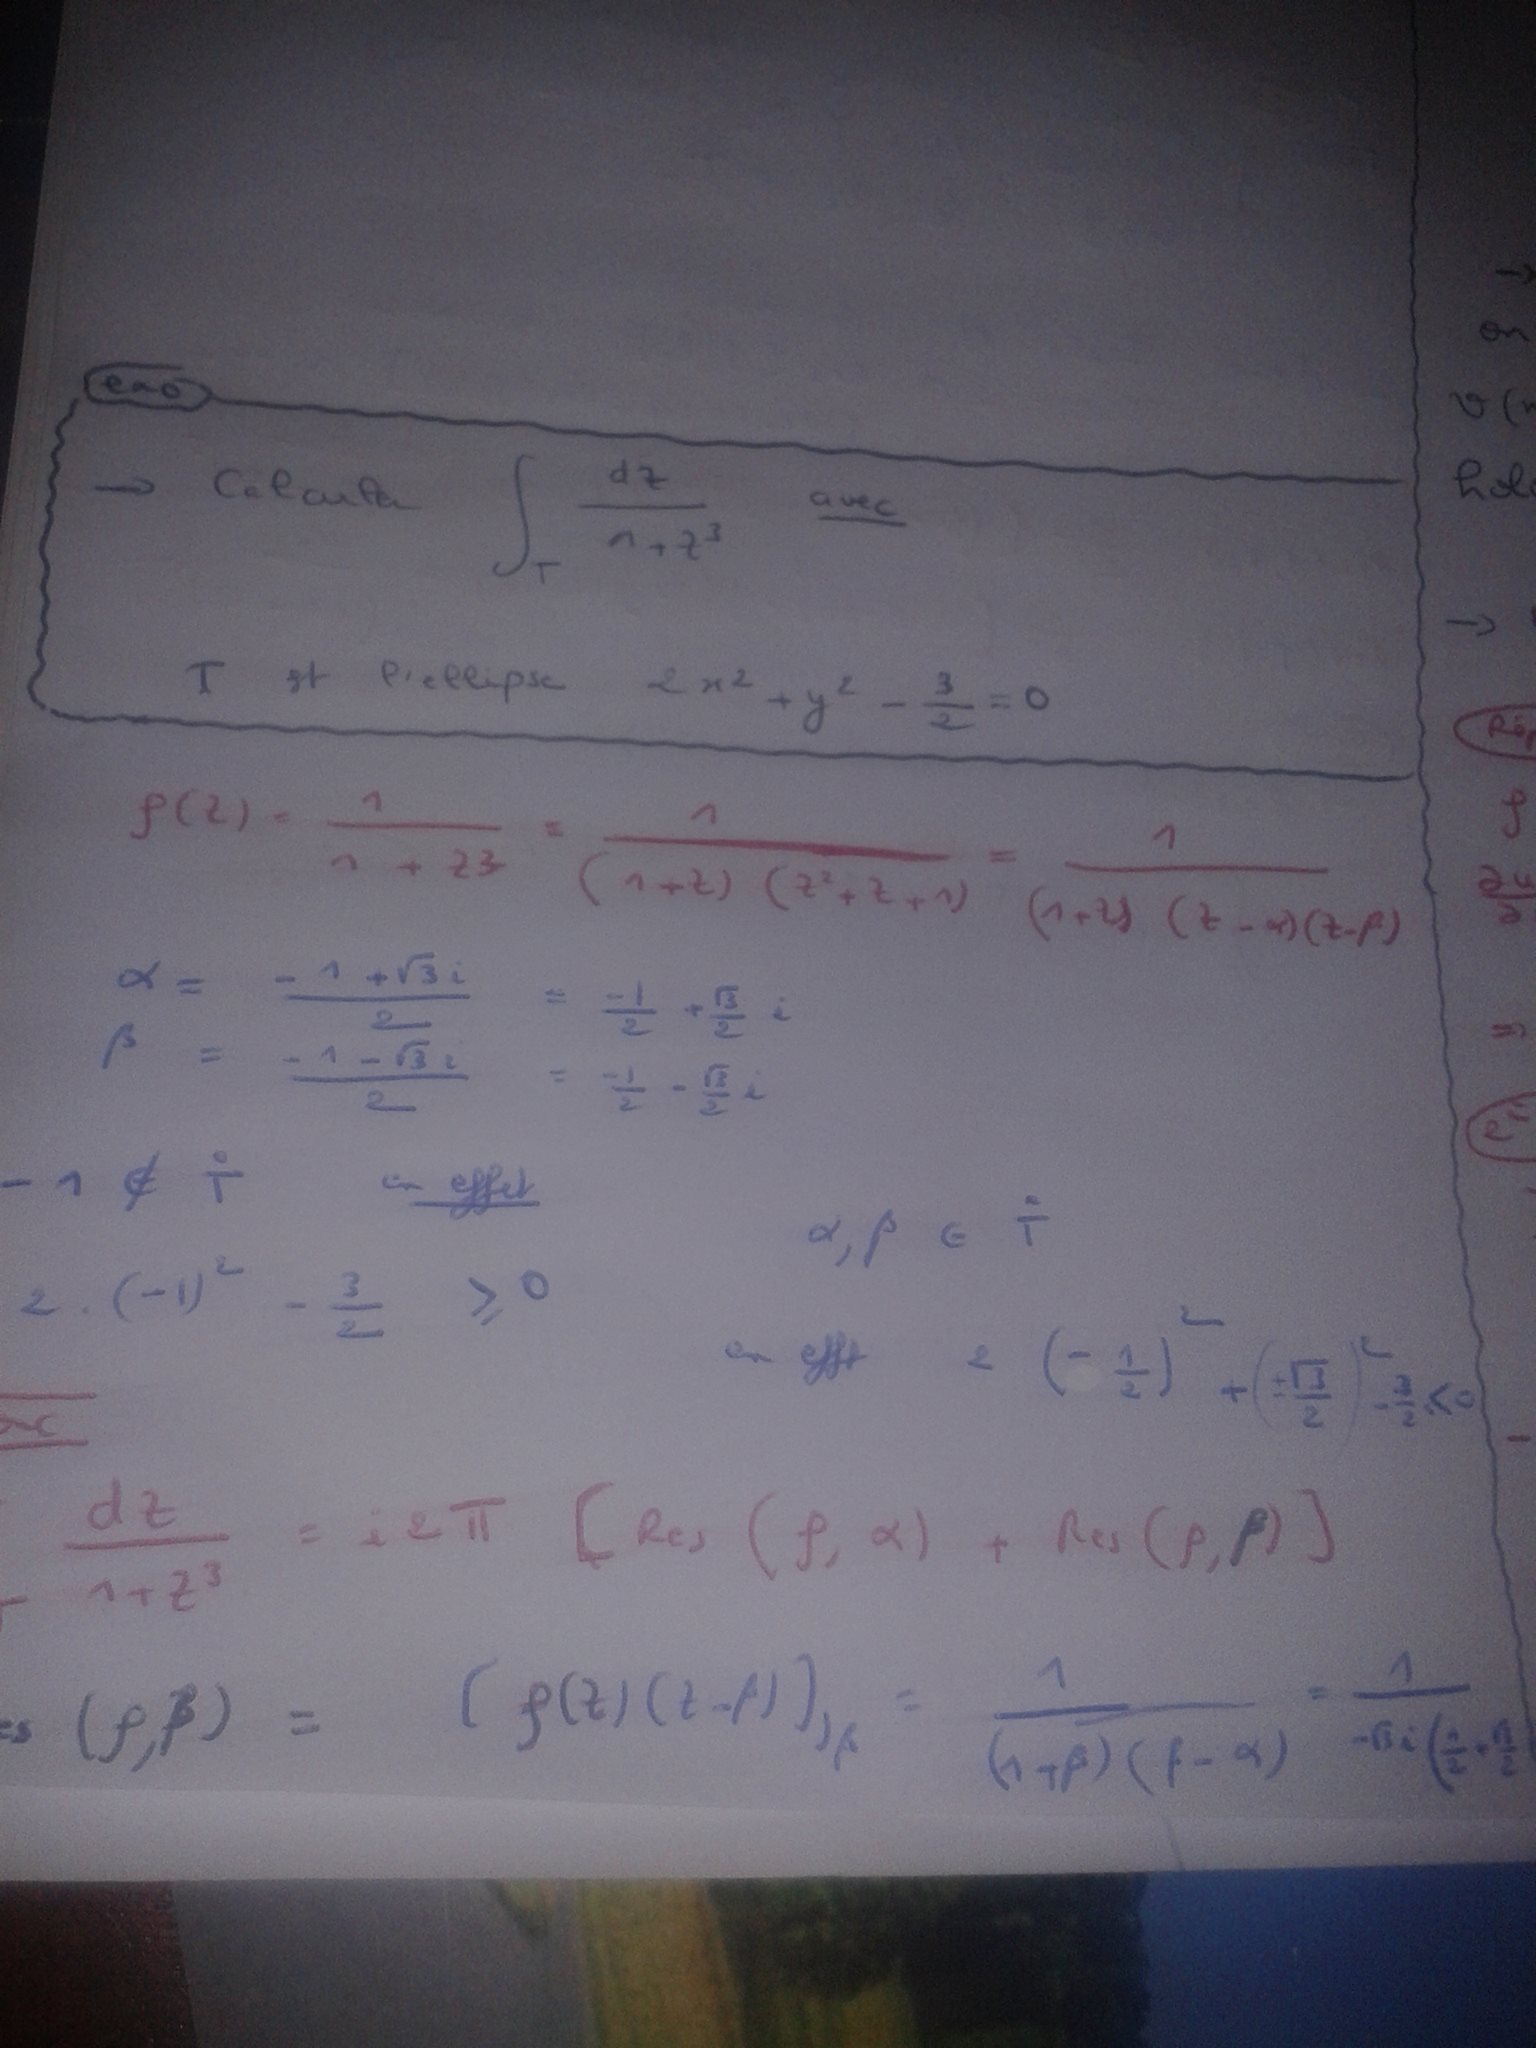 exo
→ Calculer ∫_T dz / (1+z³) avec
T est l'ellipse 2x² + y² - 3/2 = 0
f(z) = 1 / (1 + z3) = 1 / ((1+z) (z²+z+1)) = 1 / ((1+z) (z-α)(z-β))
α = (-1+√3i)/2 = -1/2 + √3/2 i
β = (-1-√3i)/2 = -1/2 - √3/2 i
-1 ∉ T̊ en effet
α, β ∈ T̊
2 . (-1)² - 3/2 ≥ 0
en effet 2 (-1/2)² + (±√3/2)² - 3/2 ≤ 0
dz / (1+z³) = i2π [Res (f, α) + Res (f, β)]
es (f, β) = [f(z)(z-β)]_{,β} = 1 / ((1+β)(β-α)) = 1 / (-√3i (1/2 + √3/2
→
on
→
=>